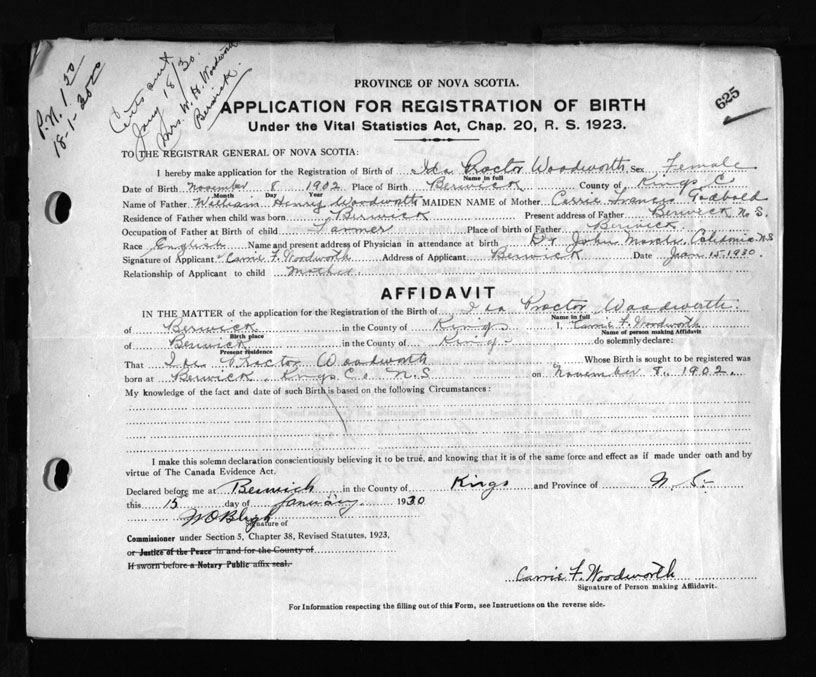 P.N. 1.50
18-1-30
Certs sent
Jany 18/30.
Mrs. W. H. Woodworth
Berwick.
625
PROVINCE OF NOVA SCOTIA.
APPLICATION FOR REGISTRATION OF BIRTH
Under the Vital Statistics Act, Chap. 20, R. S. 1923.
TO THE REGISTRAR GENERAL OF NOVA SCOTIA:
I hereby make application for the Registration of Birth of Ida Proctor Woodworth Sex Female
Name in full
Date of Birth November 8 1902 Place of Birth Berwick County of Kings C
Month Day Year
Name of Father William Henry Woodworth MAIDEN NAME of Mother Carrie Francis Godbold
Residence of Father when child was born Berwick Present address of Father Berwick N S.
Occupation of Father at Birth of child Farmer Place of birth of Father Berwick
Race English Name and present address of Physician in attendance at birth Dr John N.S
Signature of Applicant Carrie F. Woodworth Address of Applicant Berwick Date Jan 15 1930.
Relationship of Applicant to child Mother
AFFIDAVIT
IN THE MATTER of the application for the Registration of the Birth of Ida Proctor Woodworth.
Name in full
of Berwick in the County of Kings I, Carrie F. Woodworth
Birth place Name of person making Affidavit
of Berwick in the County of Kings do solemnly declare:
Present residence
That Ida Proctor Woodworth Whose Birth is sought to be registered was
born at Berwick, Kings Co N.S on November 8, 1902.
My knowledge of the fact and date of such Birth is based on the following Circumstances:
I make this solemn declaration conscientiously believing it to be true, and knowing that it is of the same force and effect as if made under oath and by
virtue of The Canada Evidence Act.
Declared before me at Berwick in the County of Kings and Province of N. S.
this 15 day of January 1930
Signature of
Commissioner under Section 5, Chapter 38, Revised Statutes, 1923,
or Justice of the Peace in and for the County of
If sworn before a Notary Public affix seal.
Carrie F. Woodworth
Signature of Person making Affidavit.
For Information respecting the filling out of this Form, see Instructions on the reverse side.